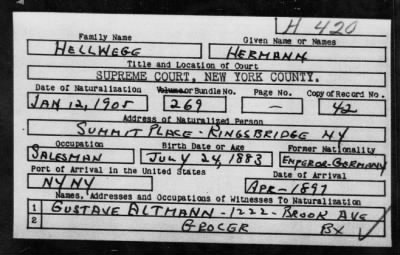 H 420
Family Name Given Name or Names
HELLWEGG HERMANN
Title and Location of Court
SUPREME COURT, NEW YORK COUNTY.
Date of Naturalization Volume or Bundle No. Page No. Copy of Record No.
JAN 12, 1905 269 — 42
Address of Naturalized Person
SUMMIT PLACE - KINGSBRIDGE NY
Occupation Birth Date or Age Former Nationality
SALESMAN JULY 24, 1883 EMPEROR-GERMANY
Port of Arrival in the United States Date of Arrival
NY NY APR - 1897
Names, Addresses and Occupations of Witnesses To Naturalization
1 GUSTAVE ALTMANN - 1222 - BROOK AVE
2 GROCER BX